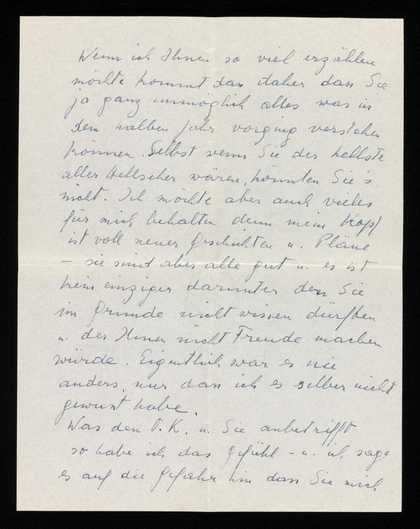 Wenn ich Ihnen so viel erzählen
möchte kommt das daher dass Sie
ja ganz unmöglich alles was in
dem halben Jahr vorging verstehen
können. Selbst wenn Sie der hellste
aller Hellseher wären, könnten Sie's
nicht. Ich möchte aber auch vieles
für mich behalten denn mein Kopf
ist voll neuer Geschichten u. Pläne
– sie sind aber alle gut u. es ist
kein einziger darunter den Sie
im Grunde nicht wissen dürften
u. der Ihnen nicht Freude machen
würde. Eigentlich war es nie
anders, nur dass ich es selber nicht
gewusst habe.
Was den V. K. u. Sie anbetrifft
so habe ich das Gefühl – u. ich sage
es auf die Gefahr hin dass Sie mich